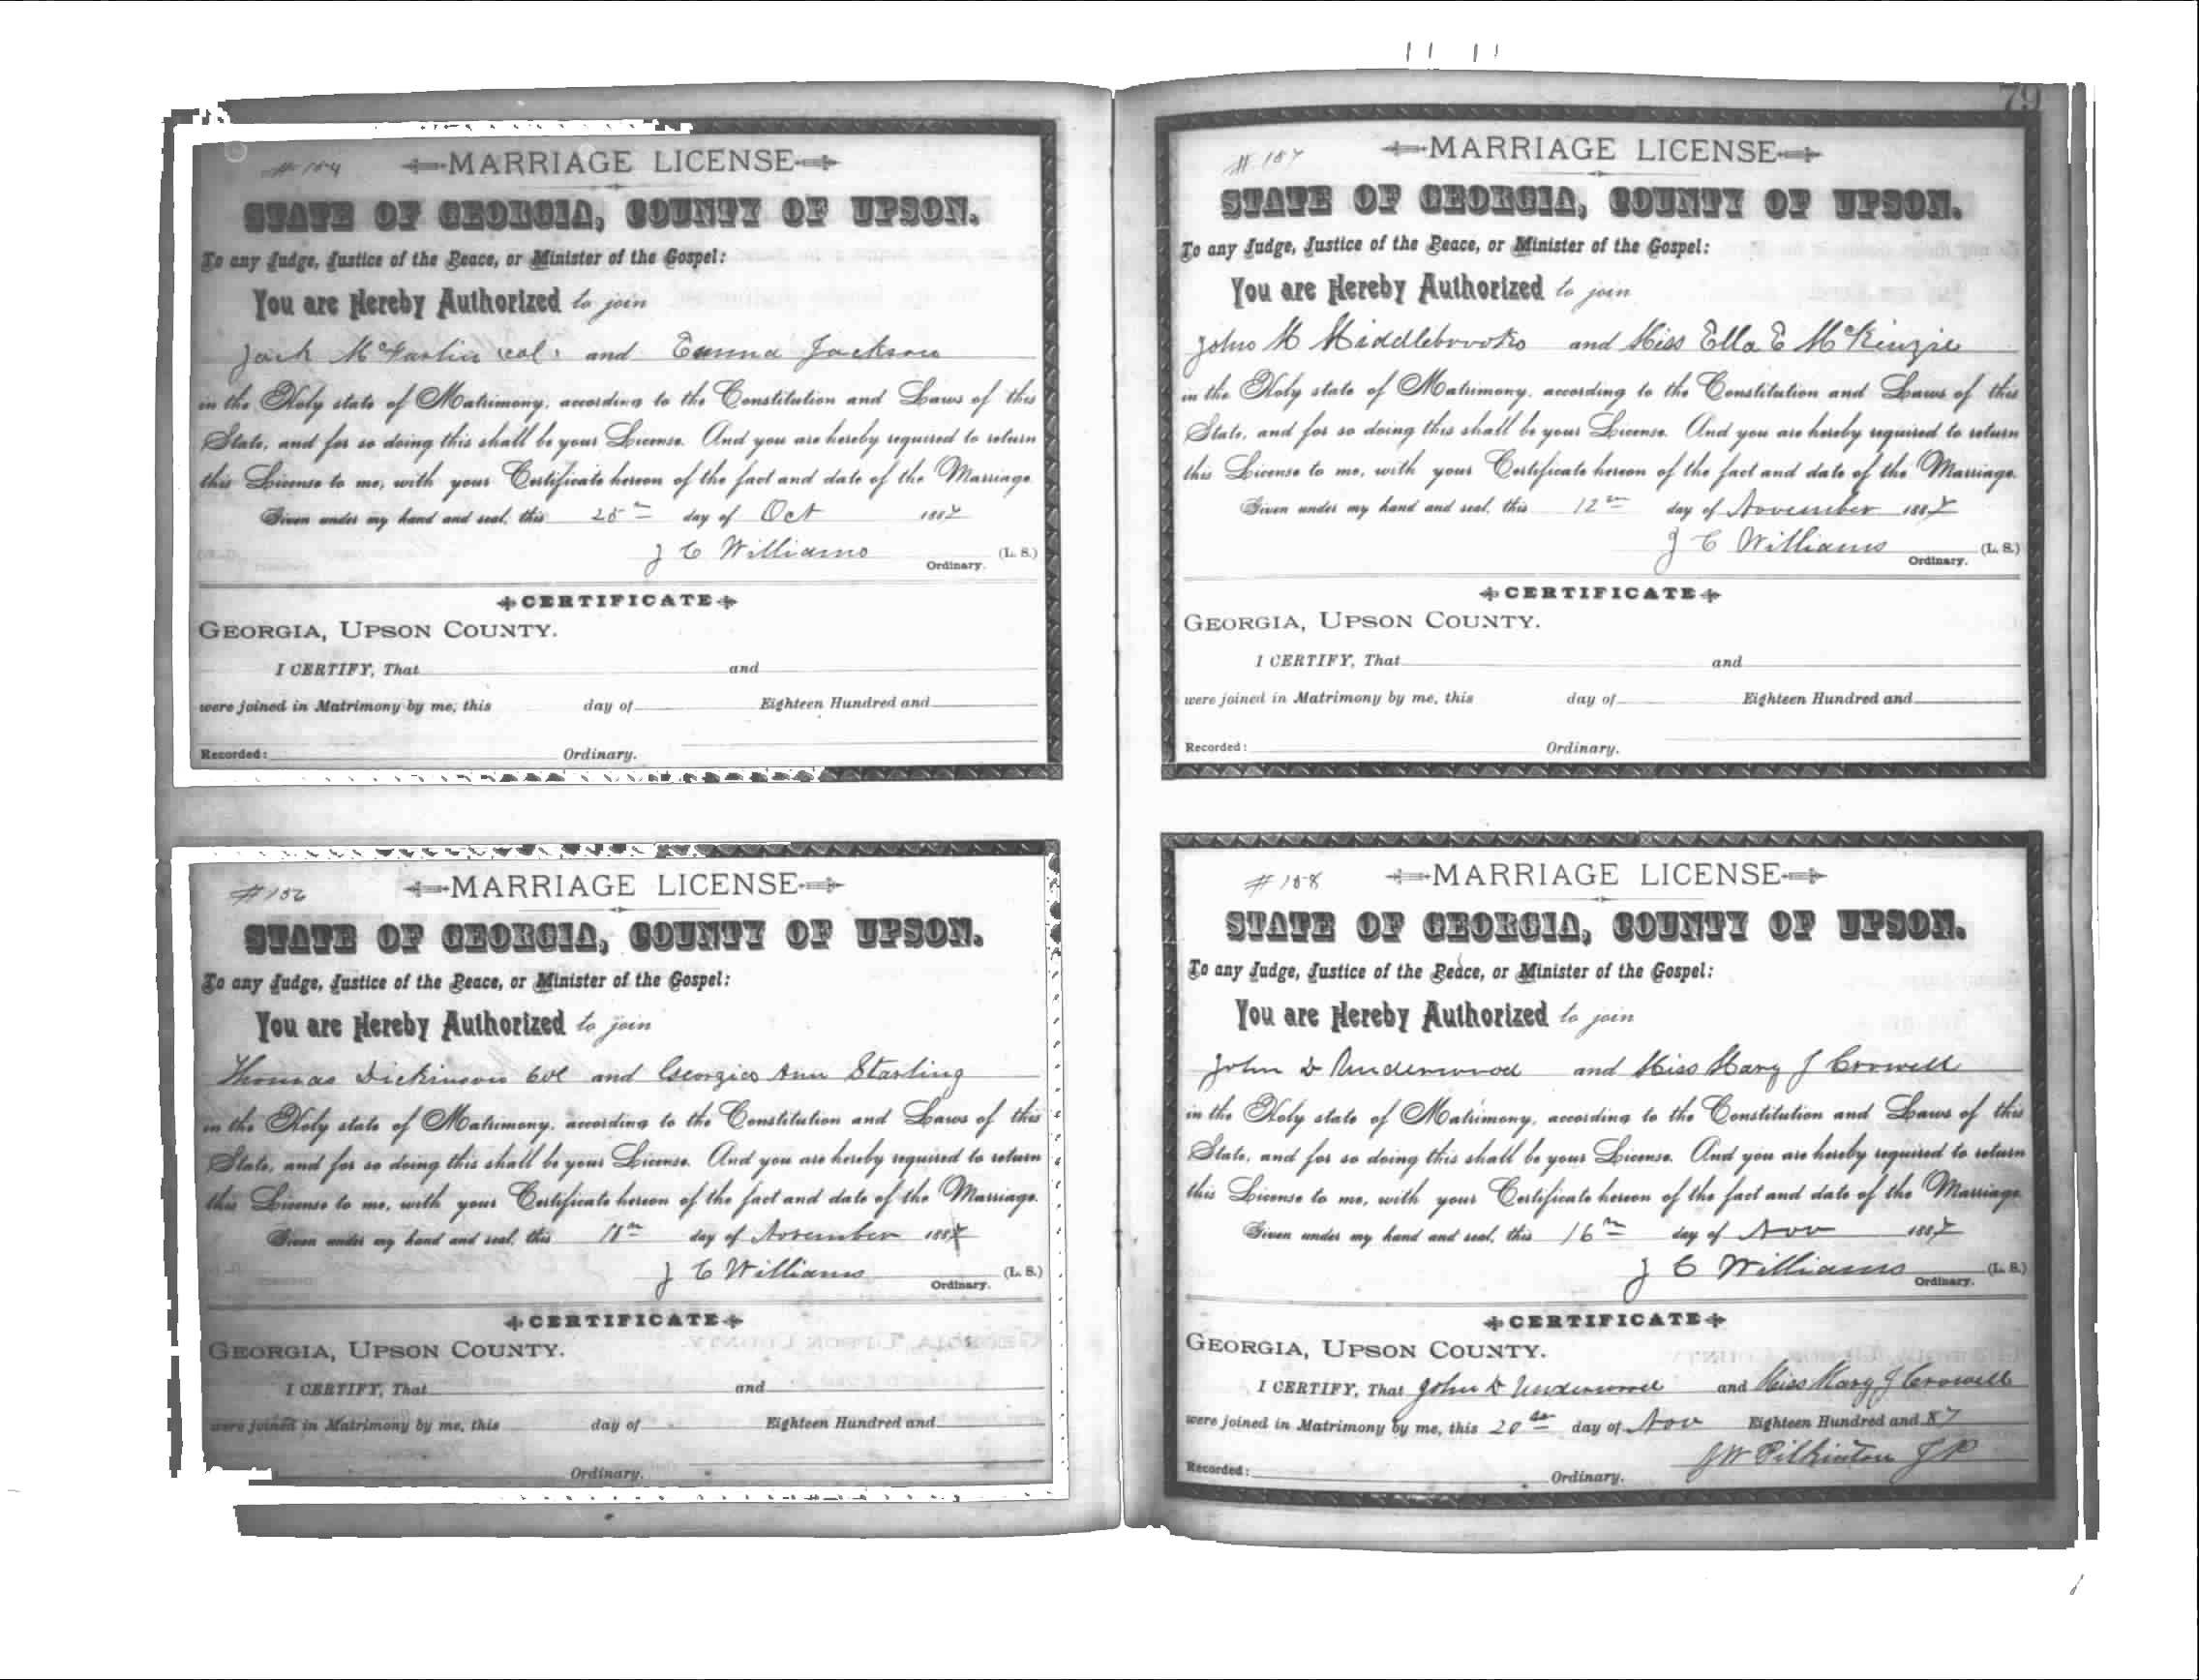 79
MARRIAGE LICENSE
STATE OF GEORGIA, COUNTY OF UPSON.
To any Judge, Justice of the Peace, or Minister of the Gospel:
You are Hereby Authorized to join
Jack McFarlin col. and Emma Jackson
in the Holy state of Matrimony, according to the Constitution and Laws of this
State, and for so doing this shall be your License. And you are hereby required to return
this License to me, with your Certificate hereon of the fact and date of the Marriage.
Given under my hand and seal, this day of Oct 1887
J C Williams (L. S.)
Ordinary.
CERTIFICATE
GEORGIA, UPSON COUNTY.
I CERTIFY, That and
were joined in Matrimony by me, this day of Eighteen Hundred and
Recorded: Ordinary.
#156 MARRIAGE LICENSE
STATE OF GEORGIA, COUNTY OF UPSON.
To any Judge, Justice of the Peace, or Minister of the Gospel:
You are Hereby Authorized to join
Thomas Dickinson Col and Georgia Ann Starling
in the Holy state of Matrimony, according to the Constitution and Laws of this
State, and for so doing this shall be your License. And you are hereby required to return
this License to me, with your Certificate hereon of the fact and date of the Marriage.
Given under my hand and seal, this day of November 1887
J C Williams (L. S.)
Ordinary.
CERTIFICATE
GEORGIA, UPSON COUNTY.
I CERTIFY, That and
were joined in Matrimony by me, this day of Eighteen Hundred and
Ordinary.
#157 MARRIAGE LICENSE
STATE OF GEORGIA, COUNTY OF UPSON.
To any Judge, Justice of the Peace, or Minister of the Gospel:
You are Hereby Authorized to join
John M Middlebrooks and Miss Ella E McKenzie
in the Holy state of Matrimony, according to the Constitution and Laws of this
State, and for so doing this shall be your License. And you are hereby required to return
this License to me, with your Certificate hereon of the fact and date of the Marriage.
Given under my hand and seal, this 12th day of November 1887
J C Williams (L. S.)
Ordinary.
CERTIFICATE
GEORGIA, UPSON COUNTY.
I CERTIFY, That and
were joined in Matrimony by me, this day of Eighteen Hundred and
Recorded: Ordinary.
#158 MARRIAGE LICENSE
STATE OF GEORGIA, COUNTY OF UPSON.
To any Judge, Justice of the Peace, or Minister of the Gospel:
You are Hereby Authorized to join
John D Underwood and Miss Mary J Crowell
in the Holy state of Matrimony, according to the Constitution and Laws of this
State, and for so doing this shall be your License. And you are hereby required to return
this License to me, with your Certificate hereon of the fact and date of the Marriage.
Given under my hand and seal, this 16th day of Nov 1887
J C Williams (L. S.)
Ordinary.
CERTIFICATE
GEORGIA, UPSON COUNTY.
I CERTIFY, That John D Underwood and Miss Mary J Crowell
were joined in Matrimony by me, this 20th day of Nov Eighteen Hundred and 87
JW Pilkinton JP
Recorded: Ordinary.